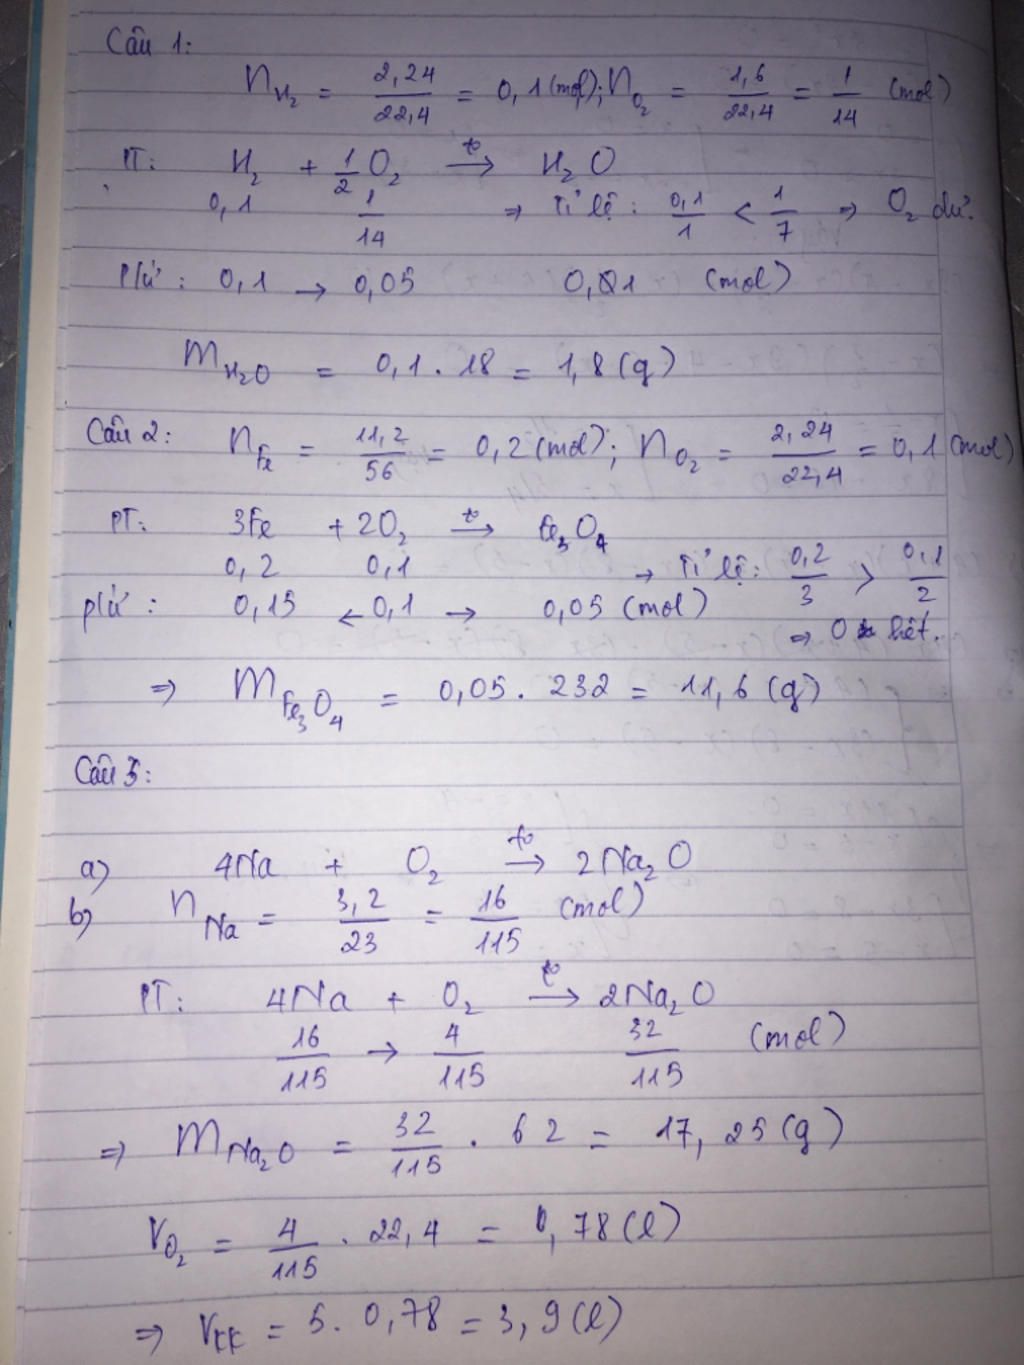 Câu 1:
n H₂ = 2,24/22,4 = 0,1 (mol); n O₂ = 1,6/22,4 = 1/14 (mol)
PT: H₂ + 1/2 O₂ →(t°) H₂O
0,1 1/14 ⇒ Tỉ lệ: 0,1/1 < 1/7 ⇒ O₂ dư.
P/ứ: 0,1 → 0,05 0,1 (mol)
m H₂O = 0,1 . 18 = 1,8 (g)
Câu 2: n Fe = 11,2/56 = 0,2 (mol); n O₂ = 2,24/22,4 = 0,1 (mol)
PT: 3Fe + 2O₂ →(t°) Fe₃O₄
0,2 0,1 → Tỉ lệ: 0,2/3 > 0,1/2
p/ứ: 0,15 ← 0,1 → 0,05 (mol)
⇒ O₂ hết.
⇒ m Fe₃O₄ = 0,05 . 232 = 11,6 (g)
Câu 3:
a) 4Na + O₂ →(t°) 2Na₂O
b) n Na = 3,2/23 = 16/115 (mol)
PT: 4Na + O₂ →(t°) 2Na₂O
16/115 → 4/115 32/115 (mol)
⇒ m Na₂O = 32/115 . 62 = 17,25 (g)
V O₂ = 4/115 . 22,4 = 0,78 (l)
⇒ V KK = 5 . 0,78 = 3,9 (l)